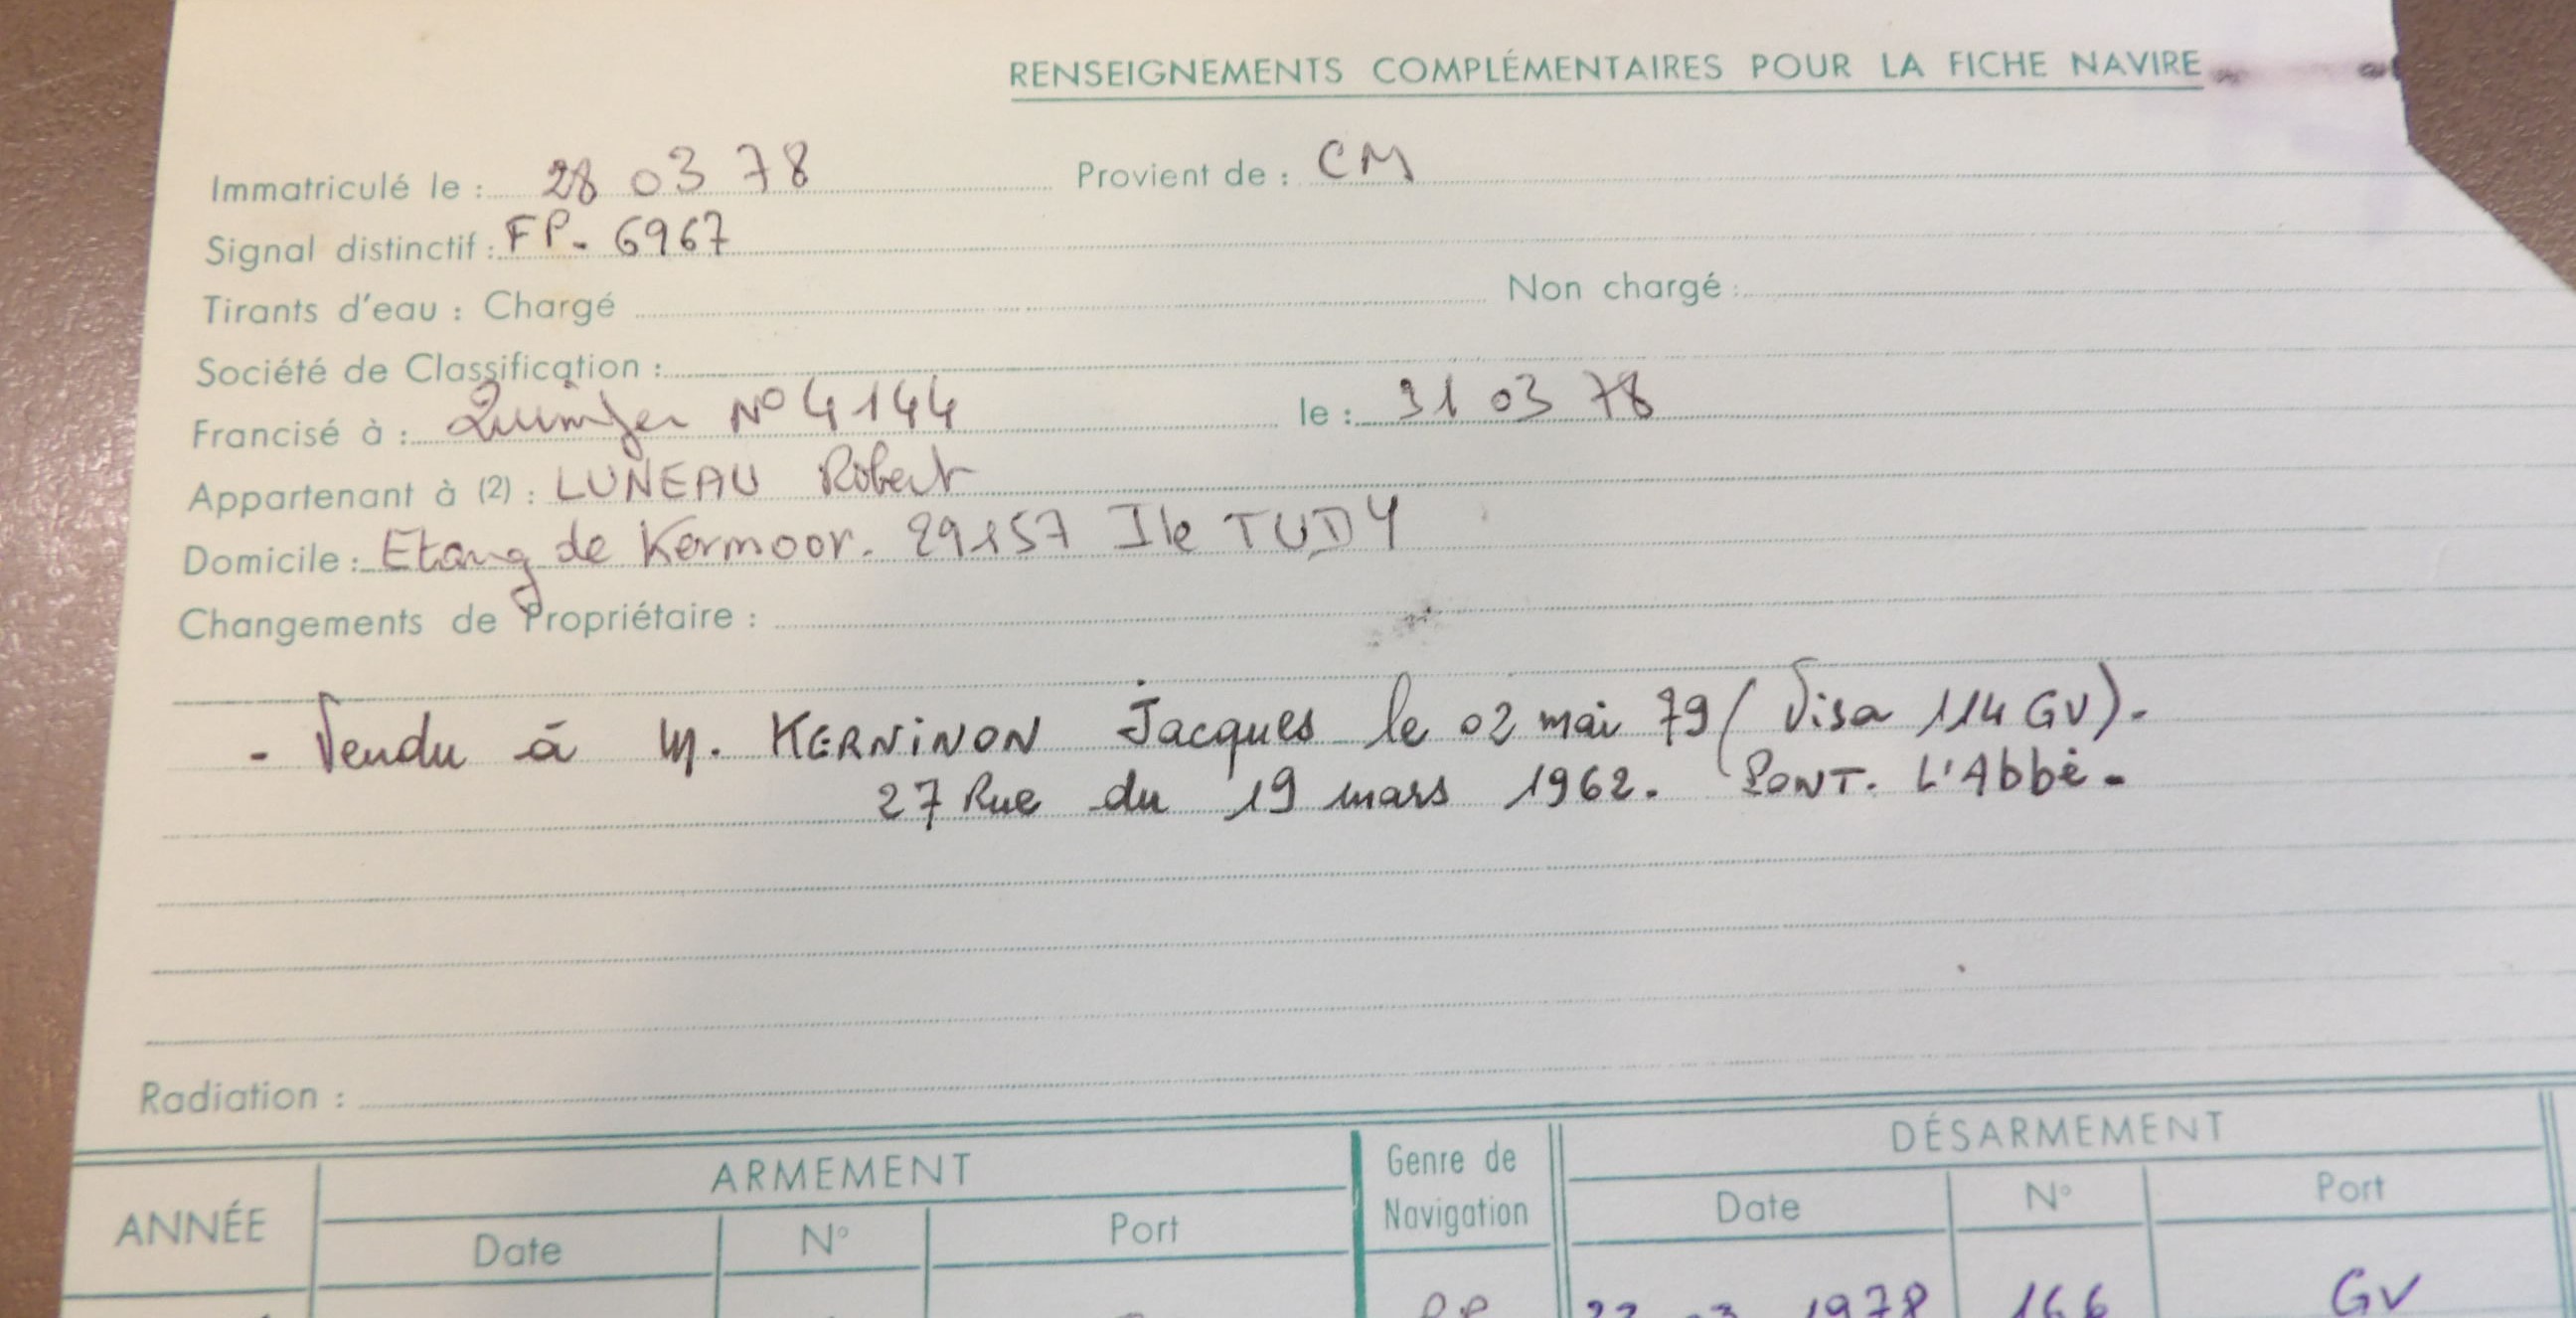 RENSEIGNEMENTS COMPLÉMENTAIRES POUR LA FICHE NAVIRE
Immatriculé le : 28 03 78 Provient de : CM
Signal distinctif : FP- 6967
Tirants d'eau : Chargé Non chargé :
Société de Classification :
Francisé à : Quimper N° 4144 le : 31 03 78
Appartenant à (2) : LUNEAU Robert
Domicile : Etang de Kermoor. 29157 Ile TUDY
Changements de Propriétaire :
- Vendu à M. KERNINON Jacques le 02 mai 79 ( Visa 114 GV).
27 Rue du 19 mars 1962. PONT. L'Abbé.
Radiation :
ANNÉE ARMEMENT Genre de Navigation DÉSARMEMENT
Date N° Port Date N° Port
1978 166 GV